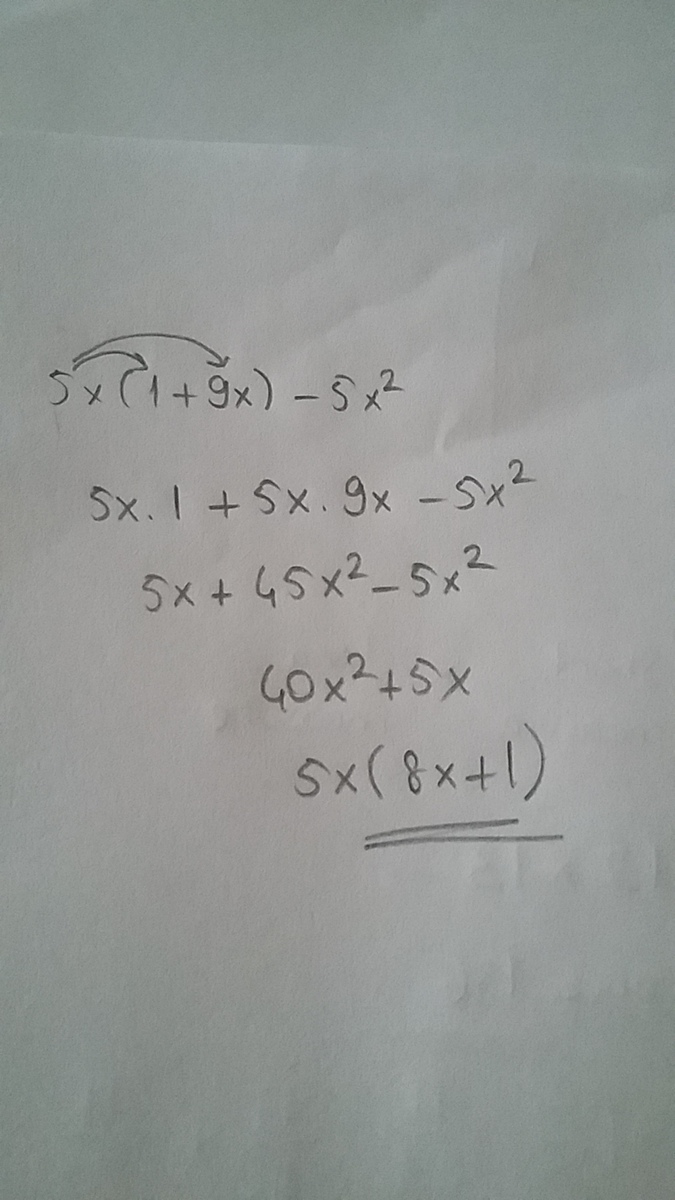 5x(1+9x) - 5x²
5x.1 + 5x.9x - 5x²
5x + 45x² - 5x²
40x² + 5x
5x(8x+1)